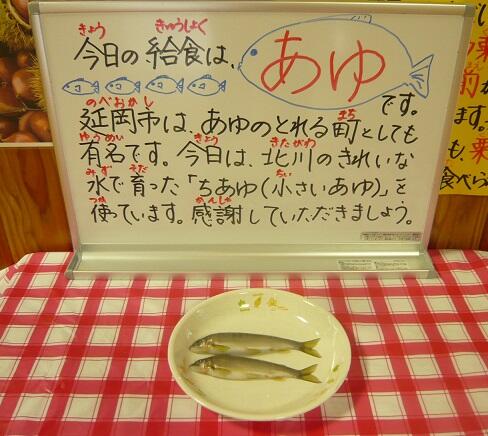 きょう きゅうしょく
今日の給食は、
あゆ
です。
のべおかし まち
延岡市は、あゆのとれる町としても
ゆうめい きょう きたがわ
有名です。今日は、北川のきれいな
みず そだ ちい
水で育った「ちあゆ(小さいあゆ)」を
つか かんしゃ
使っています。感謝していただきましょう。